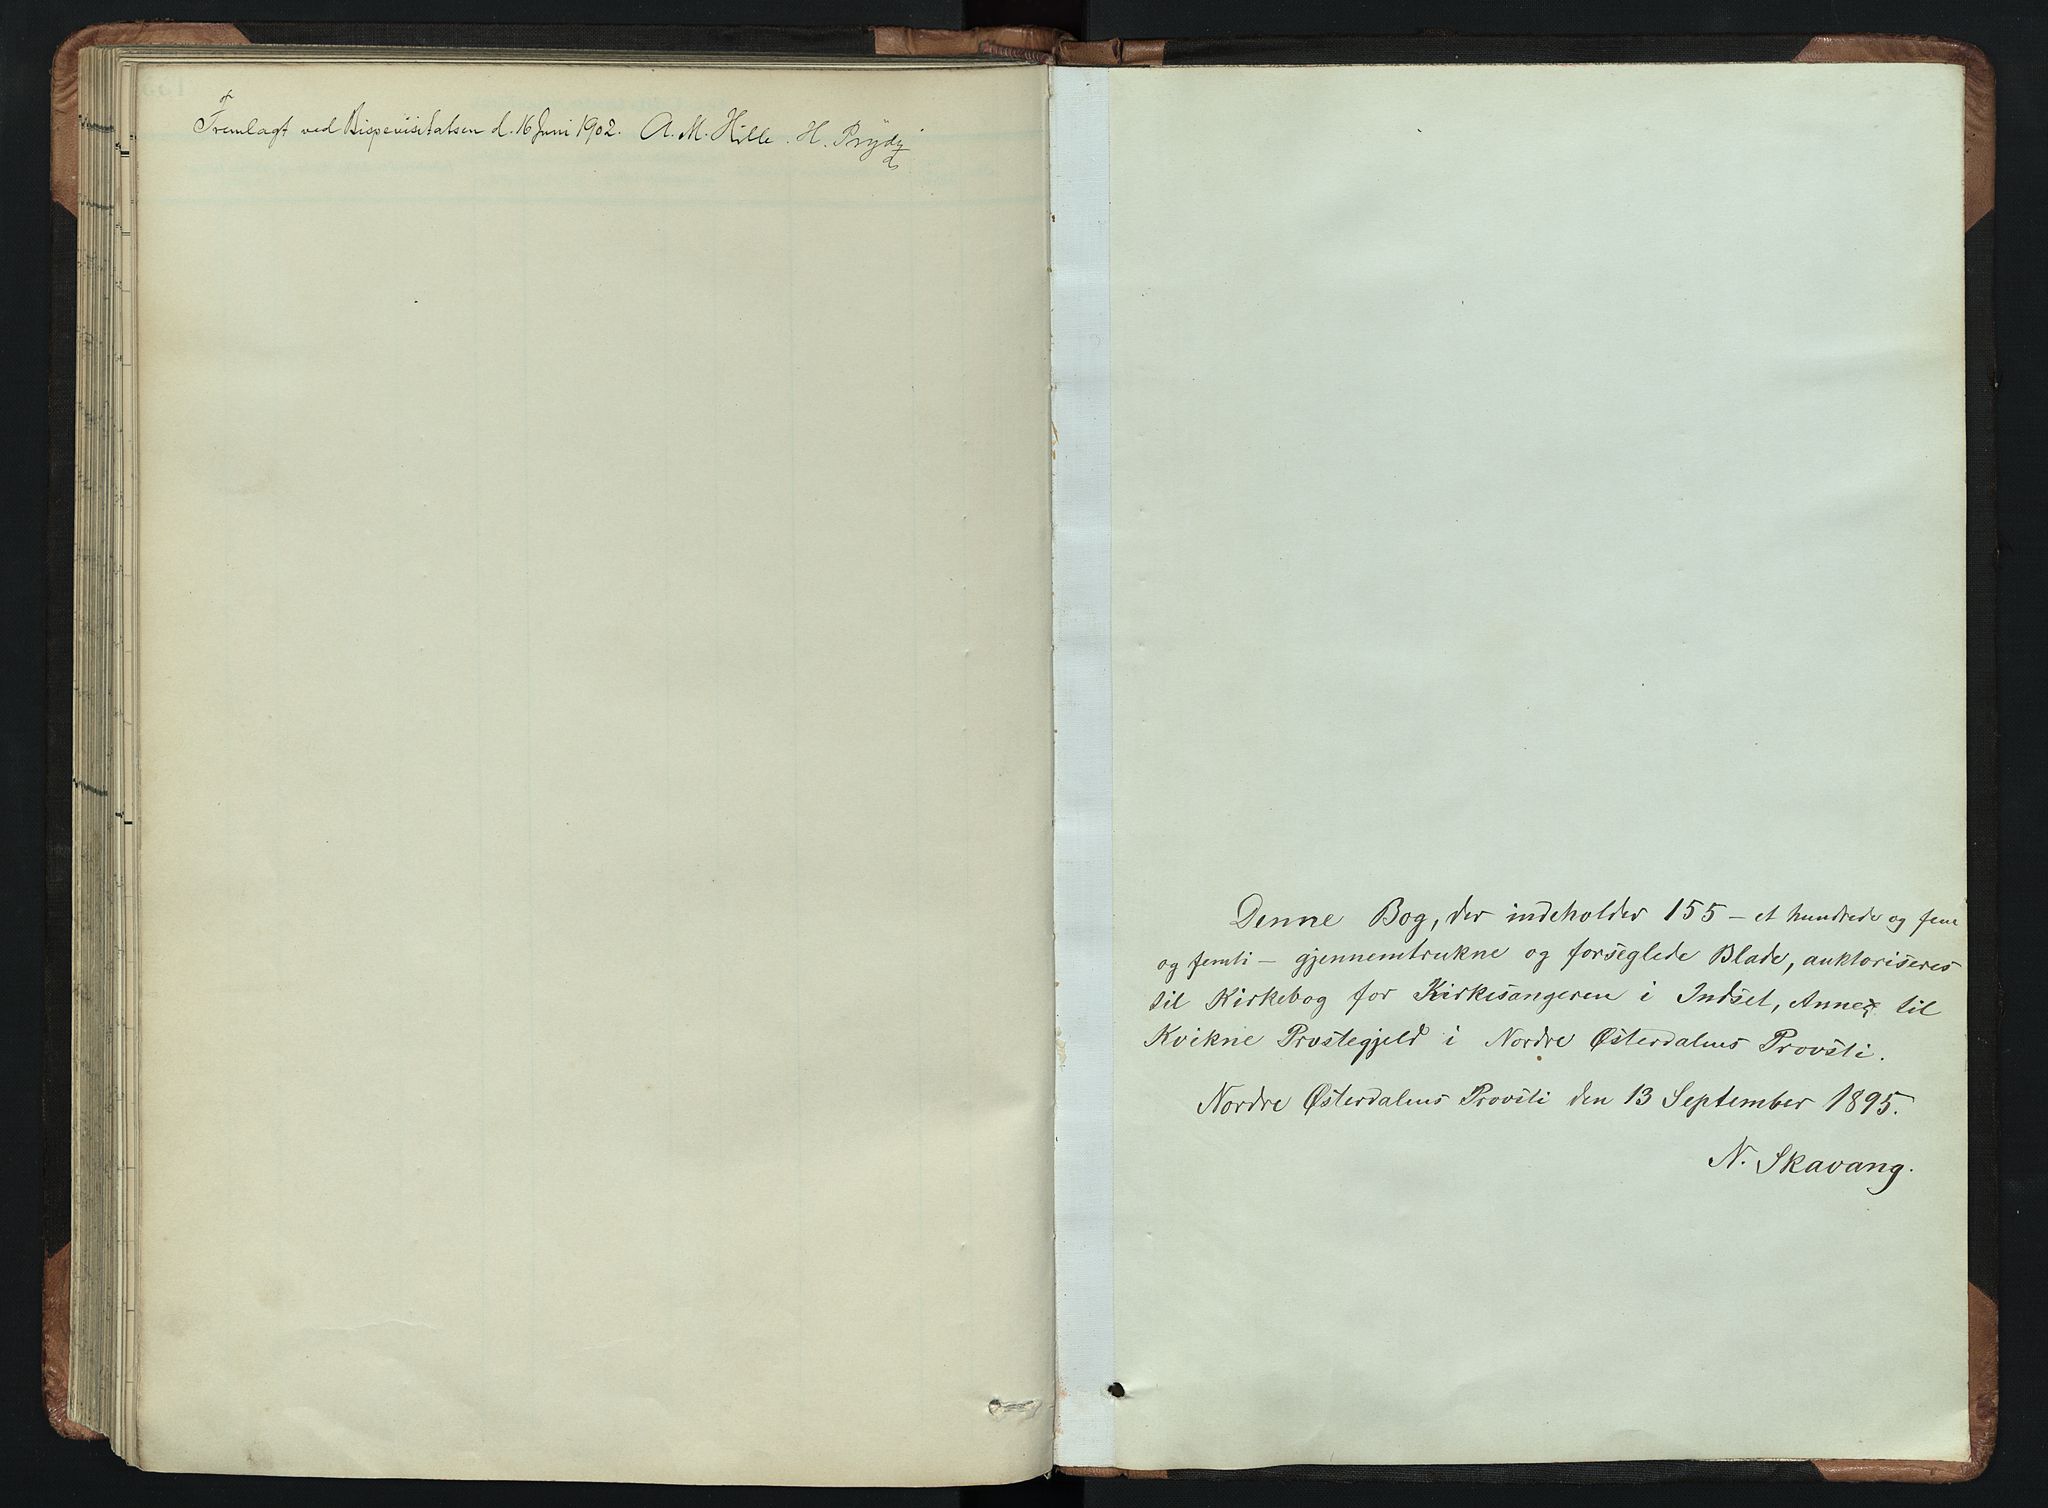 Fremlagt ved Bispevisitatsen d. 16 Juni 1902. A. M. Hille. H. Prydz
Denne Bog, der indeholder 155 – et hundrede og fem
og femti – gjennemtrukne og forseglede Blade, auktoriseres
til Kirkebog for Kirkesangeren i Indset, Annex til
Kvikne Prestegjeld i Nordre Østerdalens Provsti.
Nordre Østerdalens Provsti den 13 September 1895.
N. Skavang.